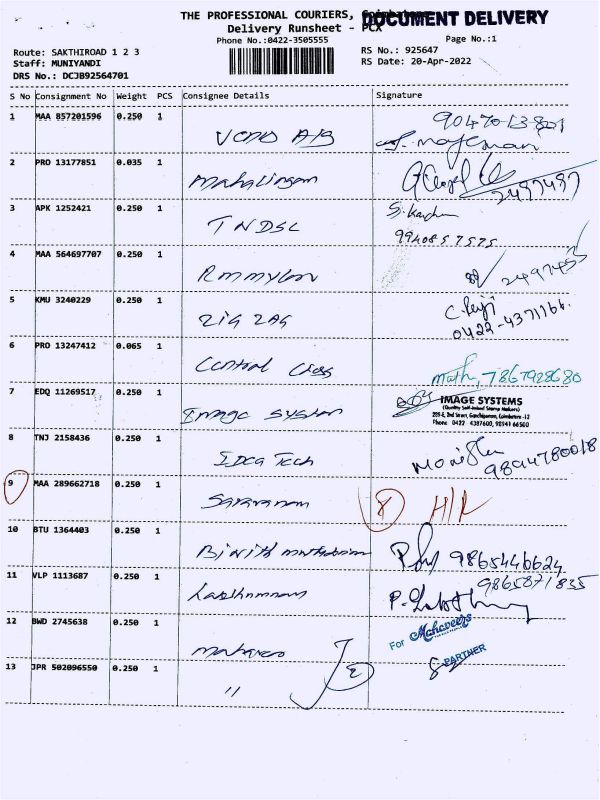 THE PROFESSIONAL COURIERS,
DOCUMENT DELIVERY
Delivery Runsheet - PCX
Phone No.:0422-3505555
Page No.:1
Route: SAKTHIROAD 1 2 3
RS No.: 925647
Staff: MUNIYANDI
RS Date: 20-Apr-2022
DRS No.: DCJB92564701
S No Consignment No Weight PCS Consignee Details Signature
1 MAA 857201596 0.250 1
90470-13-801
2 PRO 13177851 0.035 1 Mahalingam
2497497
3 APK 1252421 0.250 1 TNDSC
9940857575
4 MAA 564697707 0.250 1
2497455
5 KMU 3240229 0.250 1 ZIG ZAG
0422-4371166.
6 PRO 13247412 0.065 1 Control
7867928680
7 EDQ 11269517 0.250 1 Image System
IMAGE SYSTEMS
(Quality Self-Inked Stamp Makers)
Coimbatore -12
Phone 0422 4387600, 98941 66500
8 TNJ 2158436 0.250 1 Idea Tech
9894780018
9 MAA 289662718 0.250 1 Saravanan
8 H/R
10 BTU 1364403 0.250 1
9865446624
11 VLP 1113687 0.250 1
9865871835
12 BWD 2745638 0.250 1
For Mahaveers
PARTNER
13 JPR 502096550 0.250 1 "
2